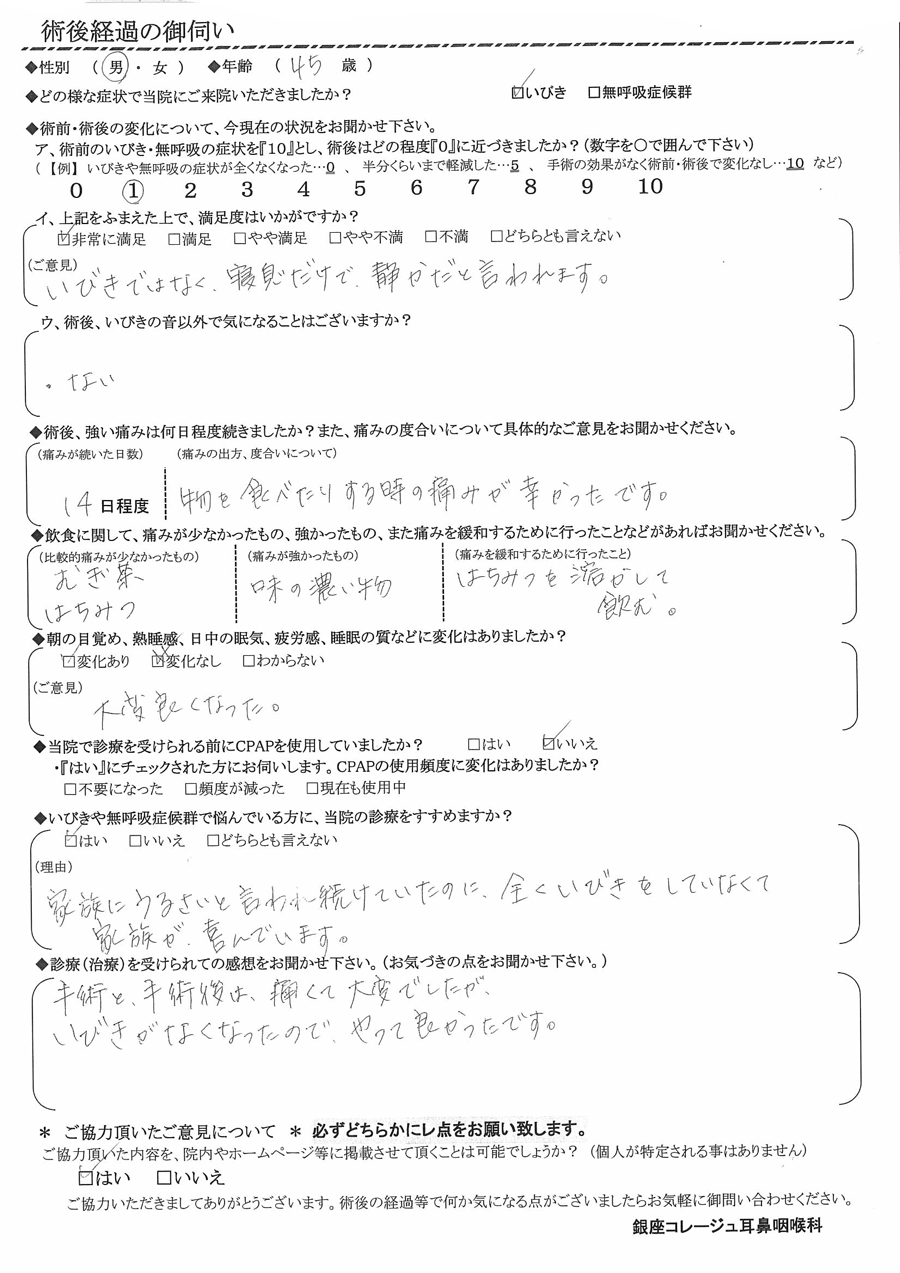 術後経過の御伺い
◆性別 （ 男 ・ 女 ） ◆年齢 （ 45 歳 ）
◆どの様な症状で当院にご来院いただきましたか？ ☑いびき □無呼吸症候群
◆術前・術後の変化について、今現在の状況をお聞かせ下さい。
ア、術前のいびき・無呼吸の症状を『10』とし、術後はどの程度『0』に近づきましたか？（数字を○で囲んで下さい）
（ 【例】 いびきや無呼吸の症状が全くなくなった…0 、 半分くらいまで軽減した…5 、 手術の効果がなく術前・術後で変化なし…10 など）
0 1 2 3 4 5 6 7 8 9 10
イ、上記をふまえた上で、満足度はいかがですか？
☑非常に満足 □満足 □やや満足 □やや不満 □不満 □どちらとも言えない
（ご意見）
いびきではなく、寝息だけで、静かだと言われます。
ウ、術後、いびきの音以外で気になることはございますか？
・ない
◆術後、強い痛みは何日程度続きましたか？また、痛みの度合いについて具体的なご意見をお聞かせください。
（痛みが続いた日数） （痛みの出方、度合いについて）
14 日程度 物を食べたりする時の痛みが辛かったです。
◆飲食に関して、痛みが少なかったもの、強かったもの、また痛みを緩和するために行ったことなどがあればお聞かせください。
（比較的痛みが少なかったもの） （痛みが強かったもの） （痛みを緩和するために行ったこと）
むぎ茶 味の濃い物 はちみつを溶かして
はちみつ 飲む。
◆朝の目覚め、熟睡感、日中の眠気、疲労感、睡眠の質などに変化はありましたか？
☑変化あり ☑変化なし □わからない
（ご意見）
大変良くなった。
◆当院で診療を受けられる前にCPAPを使用していましたか？ □はい ☑いいえ
・『はい』にチェックされた方にお伺いします。CPAPの使用頻度に変化はありましたか？
□不要になった □頻度が減った □現在も使用中
◆いびきや無呼吸症候群で悩んでいる方に、当院の診療をすすめますか？
☑はい □いいえ □どちらとも言えない
（理由）
家族にうるさいと言われ続けていたのに、全くいびきをしていなくて
家族が、喜んでいます。
◆診療（治療）を受けられての感想をお聞かせ下さい。（お気づきの点をお聞かせ下さい。）
手術と、手術後は、痛くて大変でしたが、
いびきがなくなったので、やって良かったです。
＊ ご協力頂いたご意見について ＊ 必ずどちらかにレ点をお願い致します。
ご協力頂いた内容を、院内やホームページ等に掲載させて頂くことは可能でしょうか？ （個人が特定される事はありません）
☑はい □いいえ
ご協力いただきましてありがとうございます。術後の経過等で何か気になる点がございましたらお気軽に御問い合わせください。
銀座コレージュ耳鼻咽喉科